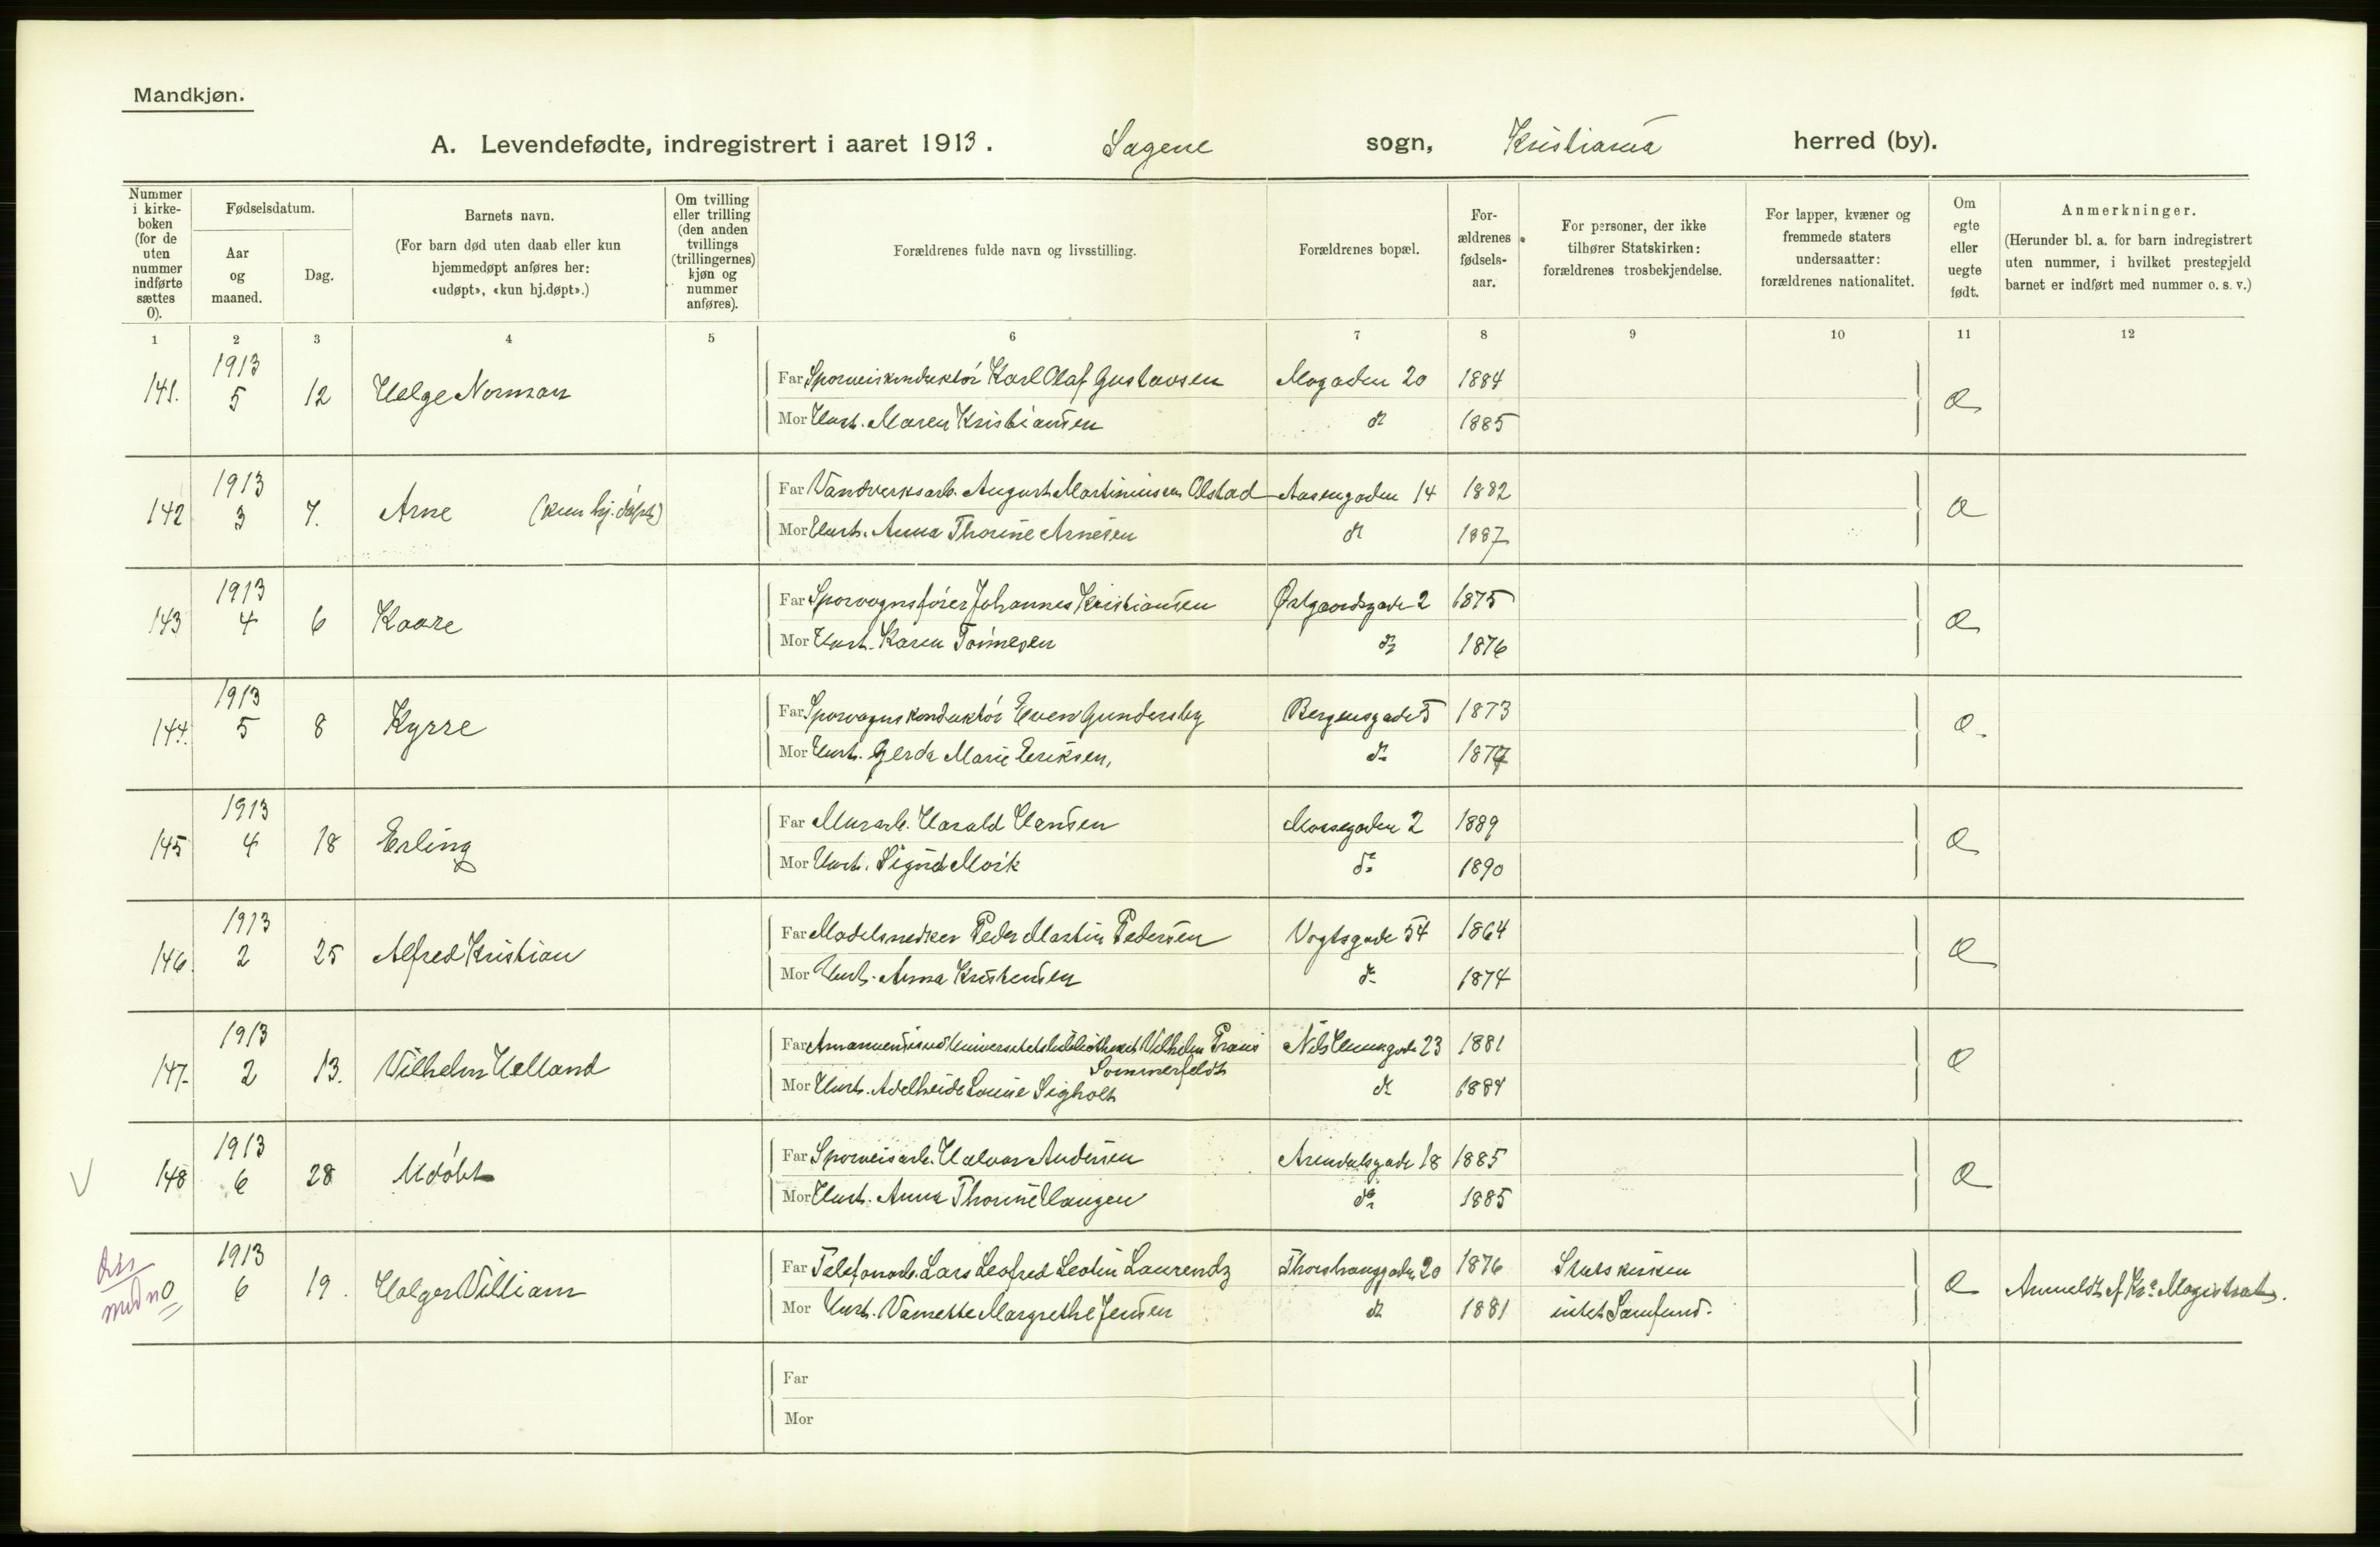 Mandkjøn.
A. Levendefødte, indregistrert i aaret 1913. Sagene sogn, Kristiania herred (by).
Nummer i kirkeboken (for de uten nummer indførte sættes 0).
Fødselsdatum.
Aar og maaned.
Dag.
Barnets navn.
(For barn død uten daab eller kun hjemmedøpt anføres her: «udøpt», «kun hj.døpt».)
Om tvilling eller trilling (den anden tvillings (trillingernes) kjøn og nummer anføres).
Forældrenes fulde navn og livsstilling.
Forældrenes bopæl.
Forældrenes fødselsaar.
For personer, der ikke tilhører Statskirken: forældrenes trosbekjendelse.
For lapper, kvæner og fremmede staters undersaatter: forældrenes nationalitet.
Om egte eller uegte født.
Anmerkninger.
(Herunder bl. a. for barn indregistrert uten nummer, i hvilket prestegjeld barnet er indført med nummer o. s. v.)
1 2 3 4 5 6 7 8 9 10 11 12
141. 1913 5 12 Helge Norman
Far Sporveiskonduktör Karl Olaf Gustavsen Mogaden 20 1884
Mor Hust. Maren Kristiansen do 1885
142 1913 3 7. Arne (kun hj. døpt)
Far Vandverksarb. August Martiniussen Olstad Aasengaden 14 1882
Mor Hust. Anna Thorine Arnesen do 1887
143 1913 4 6 Kaare
Far Sporvognsfører Johannes Kristiansen Østgaardsgade 2 1875
Mor Hust. Karen Tønnesen do 1876
144. 1913 5 8 Kyrre
Far Sporvognskonduktör Even Gundersby Bergensgade 5 1873
Mor Hust. Gerda Marie Eriksen, do
145 1913 4 18 Erling
Far Murarb. Harald Hansen Mossegaden 2 1889
Mor Hust. Sigrid Mörk do 1890
146. 1913 2 25 Alfred Kristian
Far Modelsnedker Peder Martin Pedersen Vogtsgade 54 1864
Mor Hust. Anna Kristensen do 1874
147. 1913 2 13. Vilhelm Helland
Far Amanuensis ved Universitetsbibliotheket Vilhelm Frans Sommerfeldt 23 1881
Mor Hust. Adelheide Louise Sigholt do 1884
148 1913 6 28 Udöbt
Far Sporveisarb. Halvor Andersen Arendalsgade 18 1885
Mor Hust. Anna Thorine Haugen do 1885
0 1913 6 19. Holger William
Far Telefonarb. Lars Leofred Leolin Laurendz Thorshauggaden 20 1876 Statskirken
Mor Hust. Vamette Margrethe Jensen do 1881 intet Samfund.
Anmeldt af Kra Magistrat.
Far
Mor